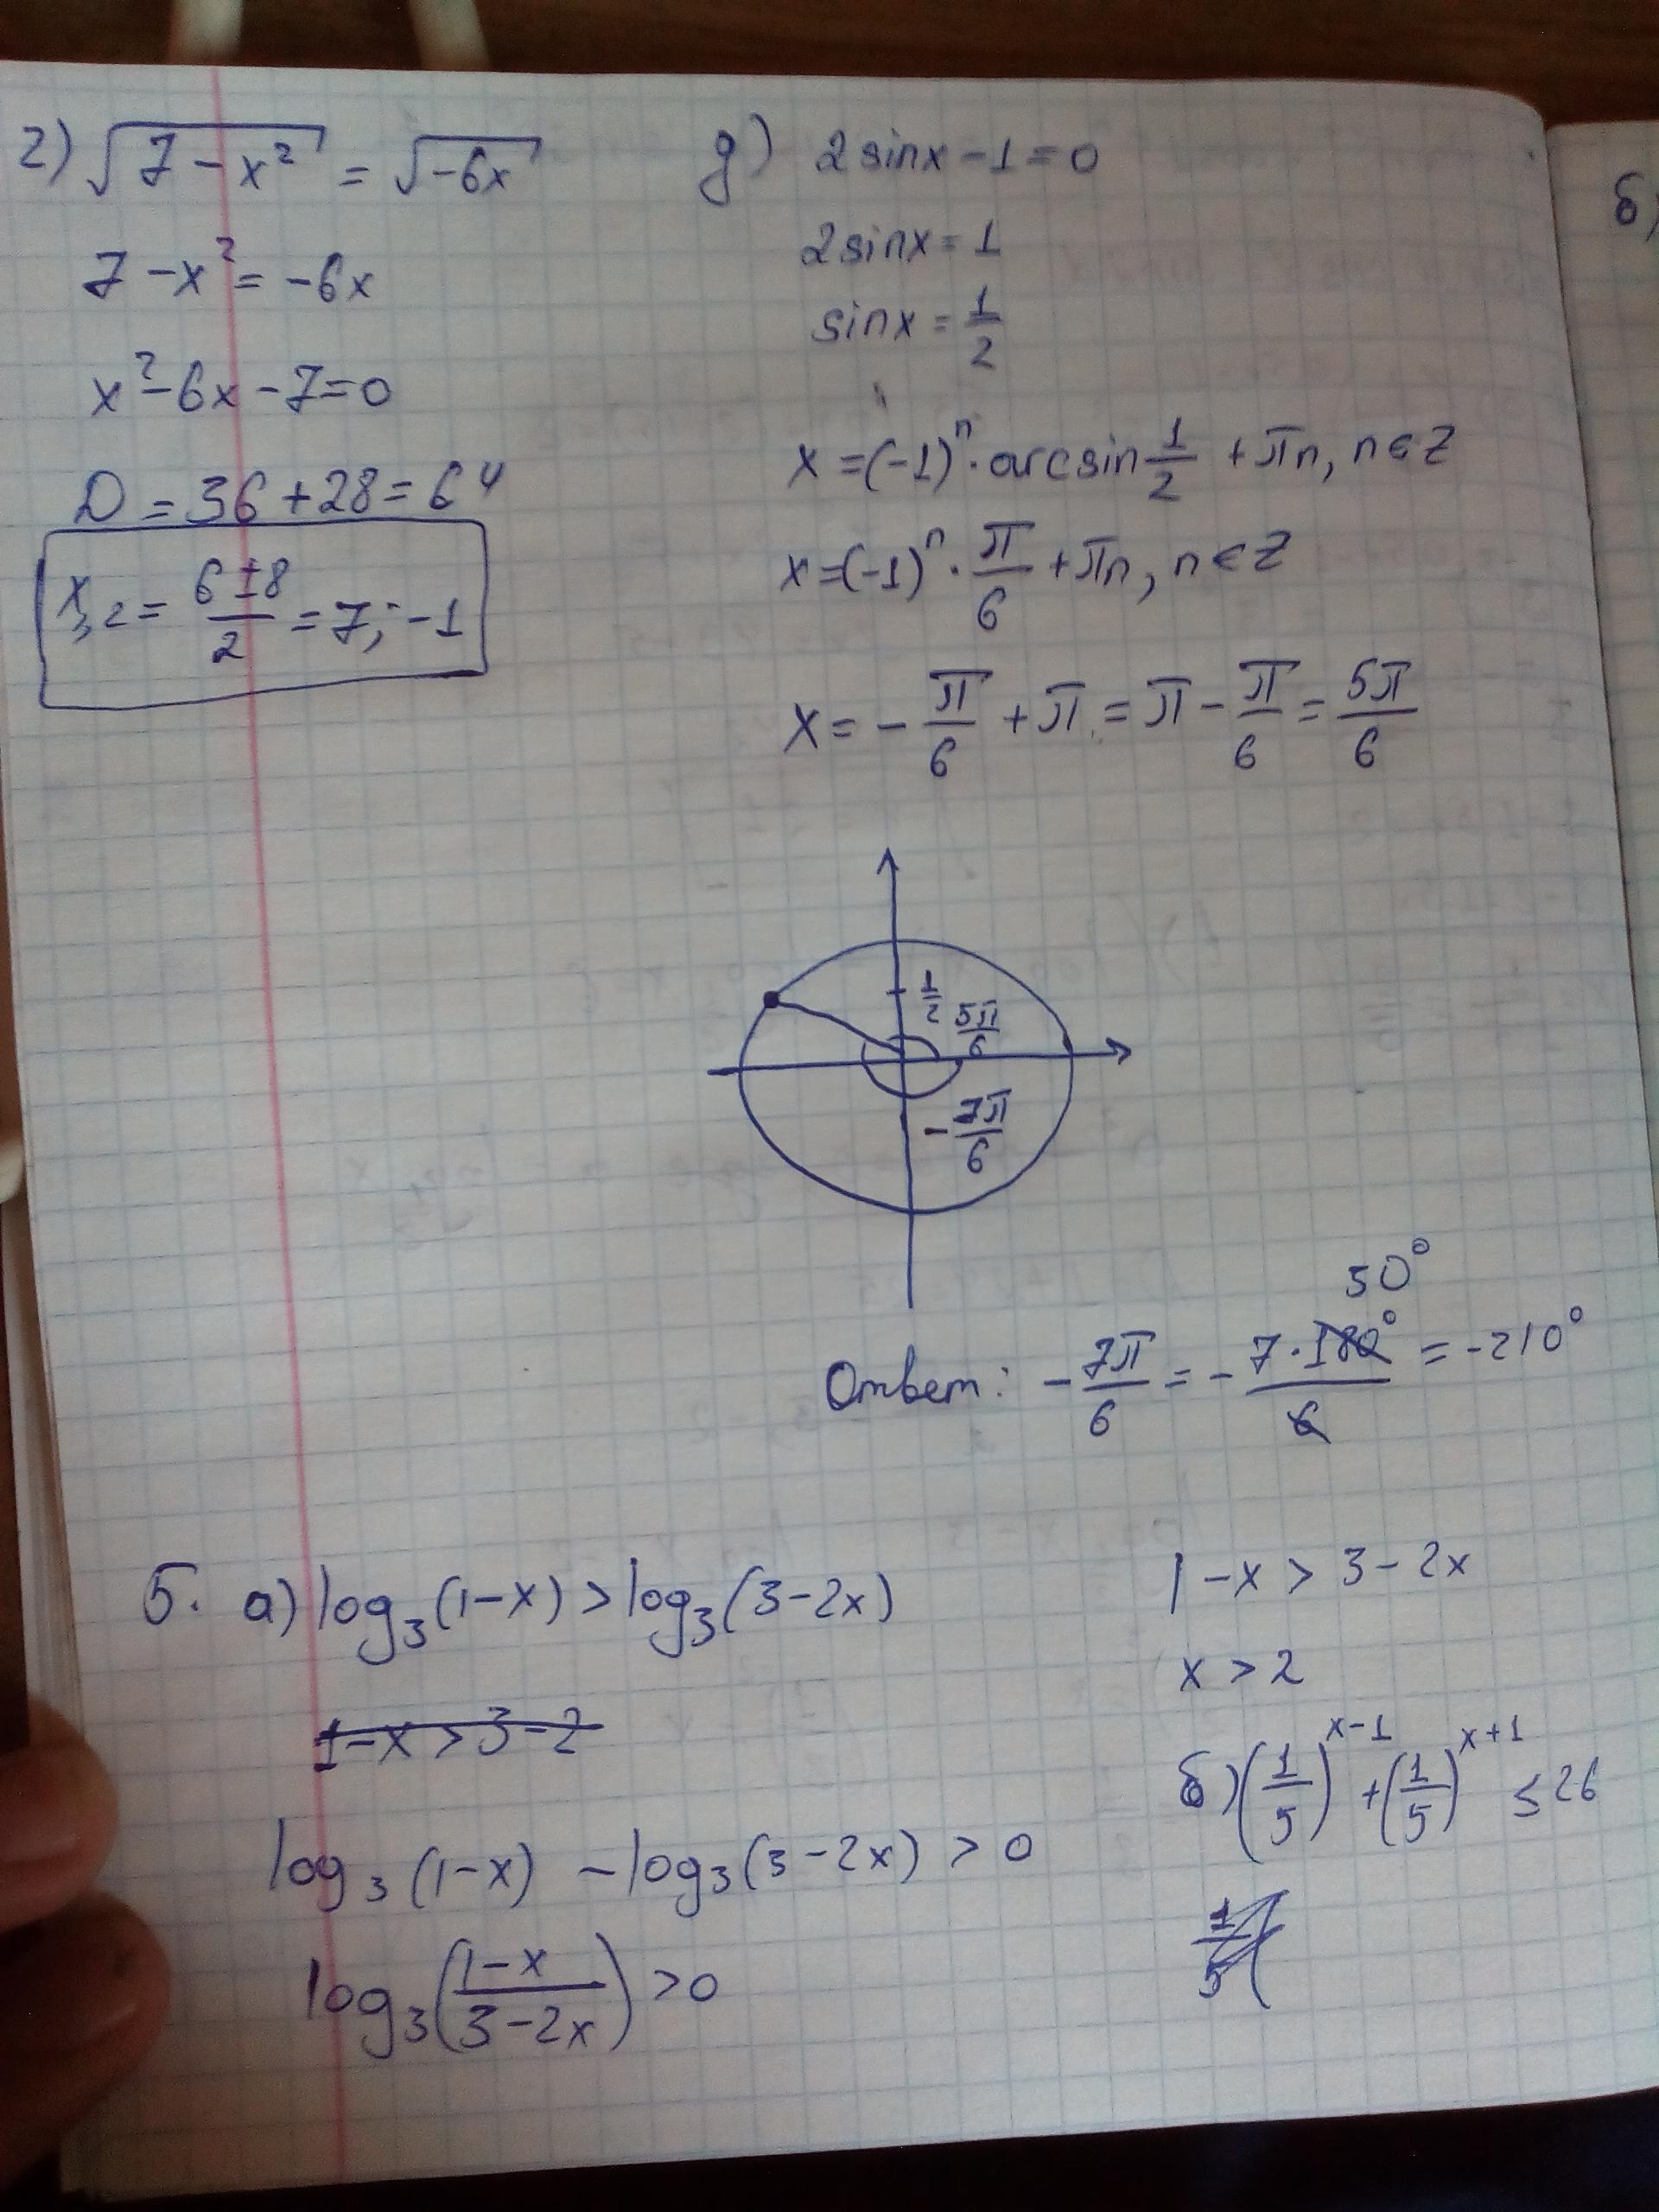 г) √(7 - x²) = √(-6x)
7 - x² = -6x
x² - 6x - 7 = 0
D = 36 + 28 = 64
x₁,₂ = (6 ± 8)/2 = 7; -1
g) 2 sinx - 1 = 0
2 sinx = 1
sinx = 1/2
x = (-1)ⁿ · arcsin 1/2 + πn, n ∈ Z
x = (-1)ⁿ · π/6 + πn, n ∈ Z
x = - π/6 + π = π - π/6 = 5π/6
1/2
5π/6
- 7π/6
30°
Ответ: - 7π/6 = - (7 · 180°)/6 = -210°
5. а) log₃(1-x) > log₃(3-2x)
1-x > 3-2
log₃(1-x) - log₃(3-2x) > 0
log₃((1-x)/(3-2x)) > 0
1-x > 3-2x
x > 2
б) (1/5)^(x-1) + (1/5)^(x+1) ≤ 26
б)